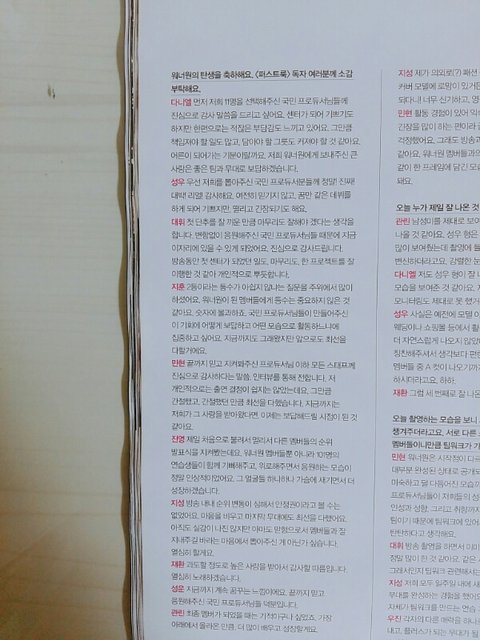 워너원의 탄생을 축하해요. <퍼스트룩> 독자 여러분께 소감
부탁해요.
다니엘 먼저 저희 11명을 선택해주신 국민 프로듀서님들께
진심으로 감사 말씀을 드리고 싶어요. 센터가 되어 기쁘기도
하지만 한편으로는 적잖은 부담감도 느끼고 있어요. 그만큼
책임져야 할 일도 많고, 담아야 할 그릇도 커져야 할 것 같아요.
어른이 되어가는 기분이랄까요. 저희 워너원에게 보내주신 큰
사랑은 좋은 팀과 무대로 보답하겠습니다.
성우 우선 저희를 뽑아주신 국민 프로듀서분들께 정말! 진짜!
대박! 리얼! 감사해요. 여전히 믿기지 않고, 꿈만 같은 데뷔를
하게 되어 기쁘지만, 떨리고 긴장되기도 해요.
대휘 첫 단추를 잘 끼운 만큼 마무리도 잘해야 겠다는 생각을
합니다. 변함없이 응원해주신 국민 프로듀서님들 때문에 지금
이자리에 있을 수 있게 되었어요. 진심으로 감사드립니다.
방송동안 첫 센터가 되었던 일도, 마무리도, 한 프로젝트를 잘
이행한 것 같아 개인적으로 뿌듯합니다.
지훈 2등이라는 등수가 아쉽지 않냐는 질문을 주위에서 많이
하셨어요. 워너원이 된 멤버들에게 등수는 중요하지 않은 것
같아요. 숫자에 불과하죠. 국민 프로듀서님들이 만들어주신
이 기회에 어떻게 보답하고 어떤 모습으로 활동하느냐에
집중하고 싶어요. 지금까지도 그래왔지만 앞으로도 최선을
다할거에요.
민현 끝까지 믿고 지켜봐주신 프로듀서님 이하 모든 스태프께
진심으로 감사하다는 말씀, 인터뷰를 통해 전합니다. 저
개인적으로는 출연 결정이 쉽지는 않았는데요, 그만큼
간절했고, 간절했던 만큼 최선을 다했습니다. 지금까지는
저희가 그 사랑을 받아왔다면, 이제는 보답해드릴 시점이 된 것
같아요.
진영 제일 처음으로 불려서 떨리서 다른 멤버들의 순위
발표식을 지켜봤는데요. 워너원 멤버들뿐 아니라 101명의
연습생들이 함께 기뻐해주고, 위로해주면서 응원하는 모습이
정말 인상적이었어요. 그 얼굴들 하나하나 가슴에 새기면서 더
성장하겠습니다.
지성 방송 내내 순위 변동이 심해서 안정권이라고 볼 수는
없었어요. 마음을 비우고 마지막 무대에도 최선을 다했어요.
아직도 실감이 나진 않지만 아마도 맏형으로서 멤버들과 잘
지내주길 바라는 마음에서 뽑아주신 게 아닌가 싶습니다.
열심히 할게요.
재환 과도할 정도로 높은 사랑을 받아서 감사할 따름입니다.
열심히 노래하겠습니다.
성운 지금까지 계속 꿈꾸는 느낌이에요. 끝까지 믿고
응원해주신 국민 프로듀서님들 덕분입니다.
관린 최종 멤버가 되었을 때는 기적이구나 싶었죠. 가장
아래에서 올라온 만큼, 더 많이 배우고 성장할게요.
지성 제가 의외로(?) 패션
커버 모델에 로망이 있거든
되다니! 너무 신기하고, 영
민현 활동 경험이 있어 익
긴장을 많이 하는 편이라
걱정했어요. 그래도 방송과
같아요. 워너원 멤버들과의
같이 한 프레임에 담긴 모습
돼요.
오늘 누가 제일 잘 나온 것
관린 남성미를 제대로 보여
나오는 것 같아요. 성우 형은
많이 보여줬는데 촬영에 들
변하더라고요. 강렬한 눈
다니엘 저도 성우 형이 잘 나
모습을 보여준 것 같아요.
모니터링도 제대로 못 했거
성우 사실은 예전에 모델 아
웨딩이나 쇼핑몰 등에서 활
더 자연스럽게 나오지 않았
칭찬해주셔서 생각보다 편
멤버들 중 A 컷이 나오기까
하시더라고요. 하하.
재환 그럼 세 번째로 잘 나온
오늘 촬영하는 모습을 보니
챙겨주더라고요. 서로 다른
멤버들이니만큼 팀워크가
민현 워너원은 시작점이 다
대부분 완성된 상태로 공개되
미숙하고 덜 다듬어진 모습까
프로듀서님들이 저희들의 성
인성과 성향, 그리고 취향까지
팀이기 때문에 팀워크에 있어
탄탄하다고 생각해요.
대휘 방송 촬영을 하면서 이미
정말 많이 한 것 같아요. 같은
그래서인지 팀워크 관련해서는
지성 저희 모두 일주일 내에 새
무대를 완성하는 경험을 했어요